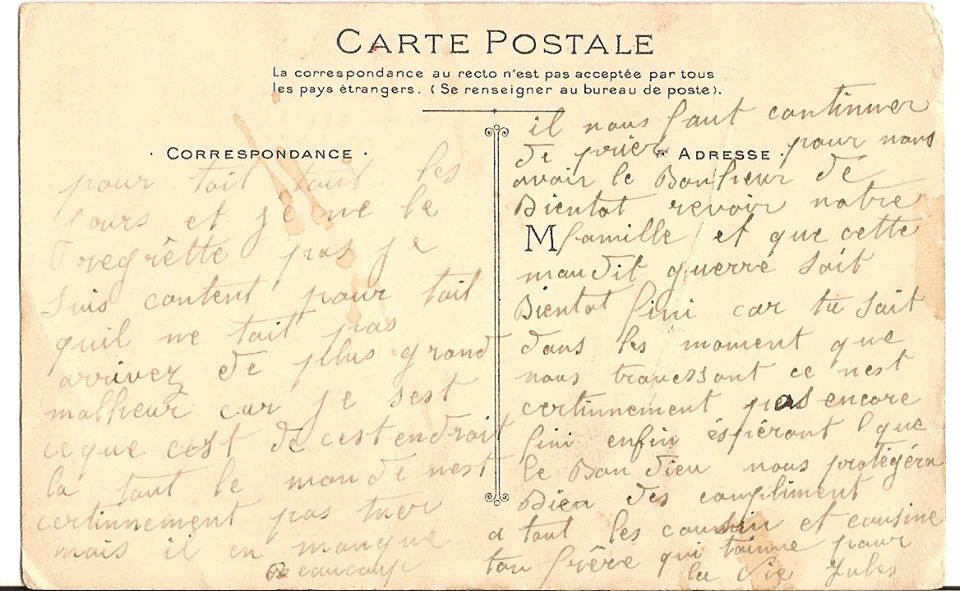 CARTE POSTALE
La correspondance au recto n'est pas acceptée par tous
les pays étrangers. (Se renseigner au bureau de poste).
· CORRESPONDANCE ·
pour toit tout les
jours et je ne le
regrètte pas je
suis content pour toit
quil ne toit pas
arrivez de plus grand
malheur car je sest
ceque cest de cest endroit
la tout le monde nest
certinnement pas tuer
mais il en manque
Beaucoup
ADRESSE ·
M
il nous faut continuer
de prier pour nous
avoir le Bonheur de
Bientot revoir notre
famille et que cette
maudit guerre soit
Bientot fini car tu sait
dans les moment que
nous travessont ce nest
certinnement pas encore
fini enfin éspéront que
le Bon dieu nous protégéra
Bien des compliment
a tout les cousin et cousine
ton frère qui taimne pour
la vie Jules